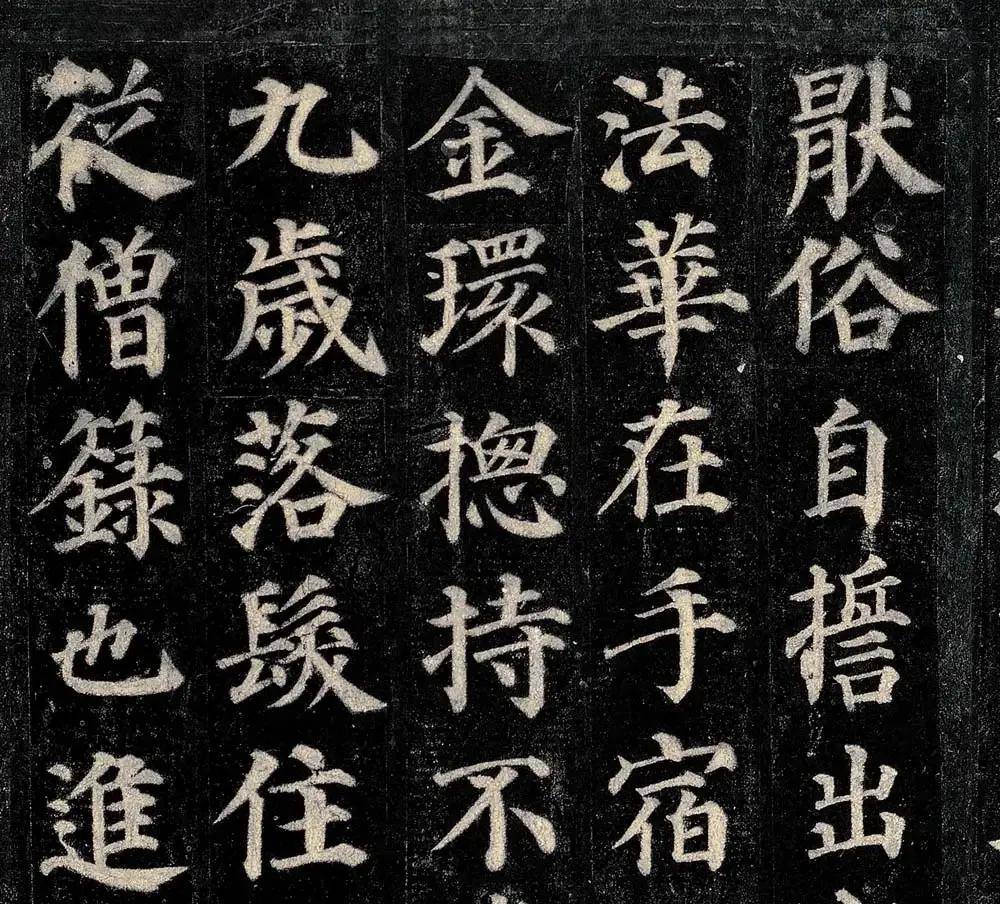 猒俗自誓出
法華在手宿
金環摠持不
九歲落髮住
從僧錄也進